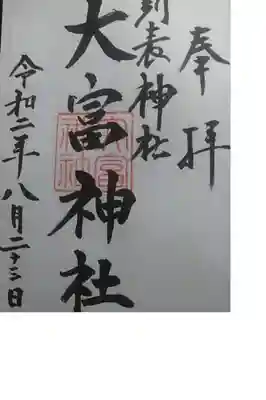 奉拝
別表神社
大富神社
令和二年八月二十三日